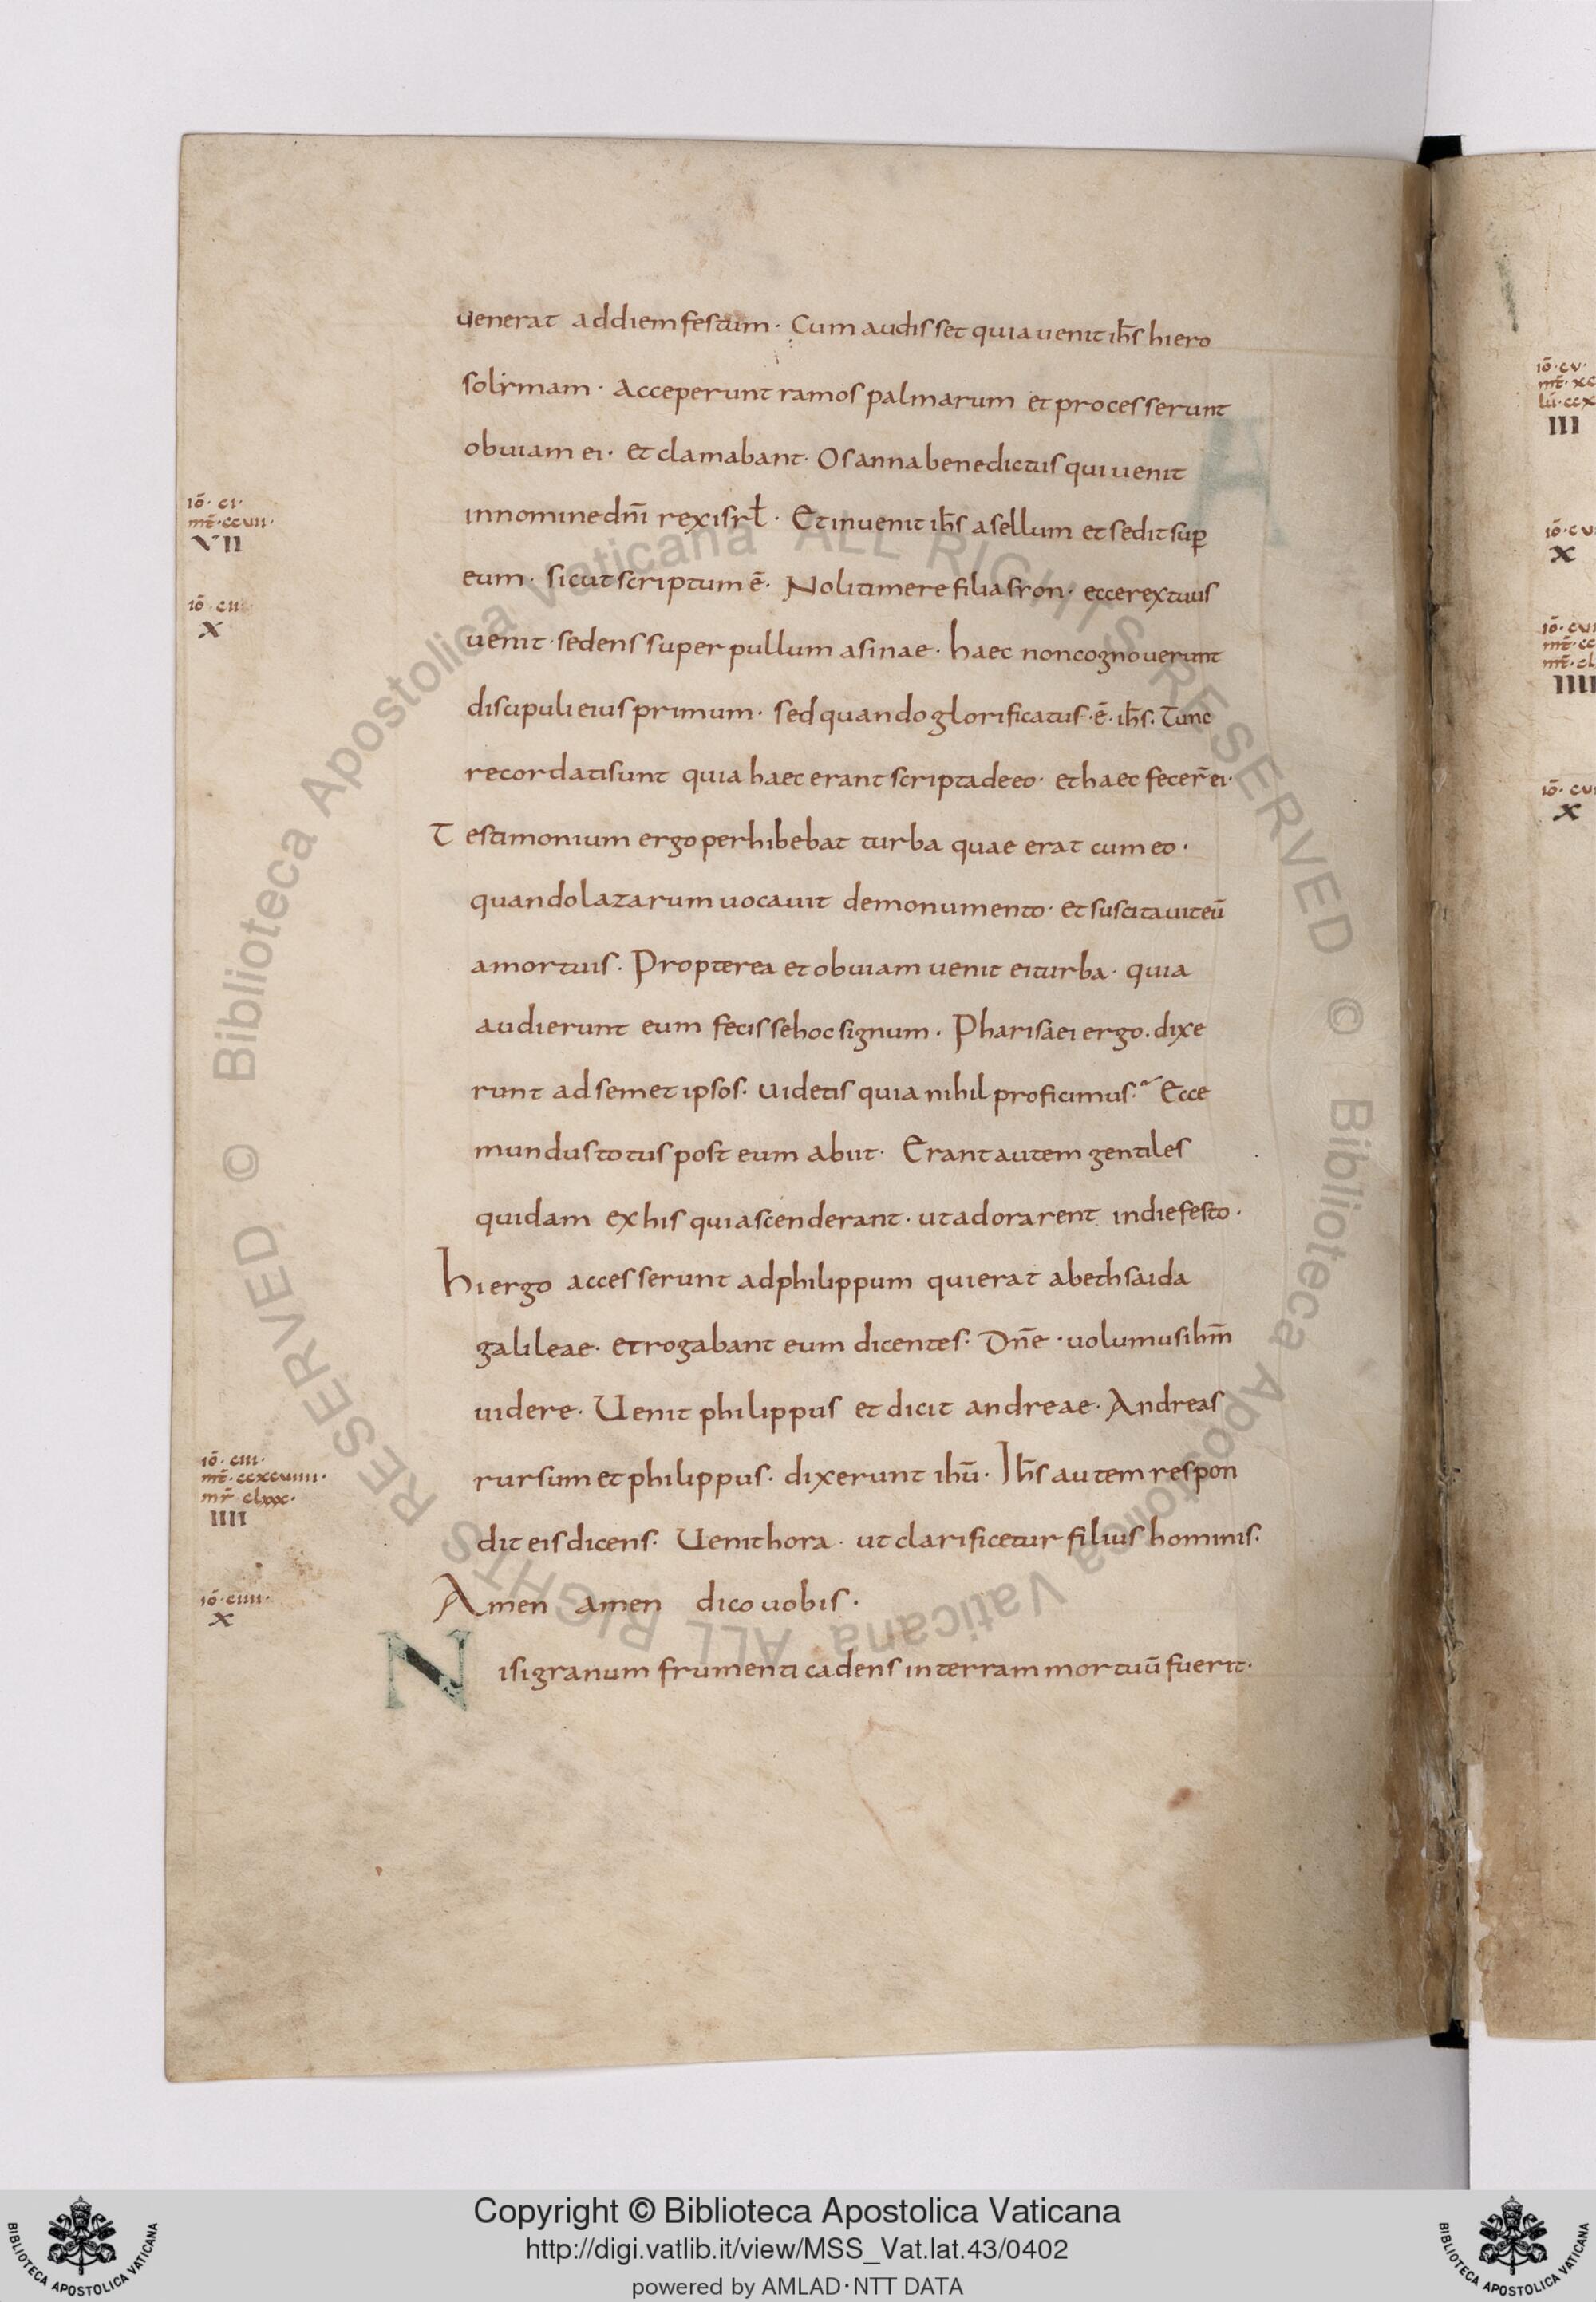 uenerat addiem festum · Cum audisset quia uenit ihs̄ hiero
solimam · Acceperunt ramos palmarum et processerunt
obuiam ei · et clamabant · Osanna benedictus qui uenit
innomine dn̄i rex isrł · Et inuenit ihs̄ asellum et sedit sup̄
eum · sicut scriptum ē · Noli timere filia siōn · ecce rex tuus
uenit · sedens super pullum asinae · haec non cognouerunt
discipuli eius primum · sed quando glorificatus · ē · ihs̄ · Tunc
recordati sunt quia haec erant scripta de eo · et haec fecer̄ ei ·
Testimonium ergo perhibebat turba quae erat cum eo ·
quando lazarum uocauit de monumento · et suscitauit eū
amortuis · Propterea et obuiam uenit ei turba · quia
audierunt eum fecisse hoc signum · Pharisaei ergo · dixe
runt ad semet ipsos · uidetis quia nihil proficimus · Ecce
mundus totus post eum abiit · Erant autem gentiles
quidam ex his qui ascenderant · ut adorarent in die festo ·
hi ergo accesserunt ad philippum qui erat abethsaida
galileae · et rogabant eum dicentes · Dn̄e · uolumus ihm̄
uidere · Uenit philippus et dicit andreae · Andreas
rursum et philippus · dixerunt ihū · Ihs̄ autem respon
dit eis dicens · Uenit hora · ut clarificetur filius hominis ·
Amen amen dico uobis ·
Nisi granum frumenti cadens in terram mortuū fuerit ·
iō · ci ·
mt̄ · ccuii ·
VII
iō · cii ·
X
iō · ciii ·
mt̄ · ccxcuiiii ·
mr̄ · clxxx ·
IIII
iō · ciiii ·
X
iō · cu ·
III
X
IIII
X
© Biblioteca Apostolica Vaticana ALL RIGHTS RESERVED © Biblioteca Apostolica Vaticana ALL RIGHTS RESERVED
Copyright © Biblioteca Apostolica Vaticana
http://digi.vatlib.it/view/MSS_Vat.lat.43/0402
powered by AMLAD·NTT DATA
BIBLIOTECA APOSTOLICA VATICANA
BIBLIOTECA APOSTOLICA VATICANA